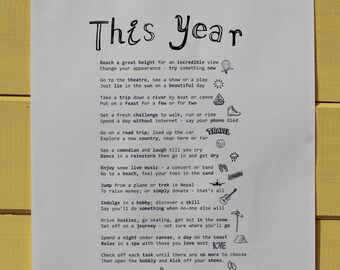 This Year
Reach a great height for an incredible view
Change your appearance - try something new
Go to the theatre, see a show or a play
Just lie in the sun on a beautiful day
Take a trip down a river by boat or canoe
Put on a feast for a few or for two
Set a fresh challenge to walk, run or ride
Spend a day without internet - say your phone died
Go on a road trip; load up the car
Explore a new country, near here or far
TRAVEL
See a comedian and laugh till you cry
Dance in a rainstorm then go in and get dry
Enjoy some live music - a concert or band
Go to a beach, feel your toes in the sand
Jump from a plane or trek in Nepal
To raise money; or simply donate - that's all
Indulge in a hobby; discover a skill
Say you'll do something when no-one else will
Drive huskies, go skating, get out in the snow
Set off on a journey - not sure where you'll go
Spend a night under canvas, a day on the coast
Relax in a spa with those you love most
Check off each task until there are no more to choose
Then open the bubbly and kick off your shoes.